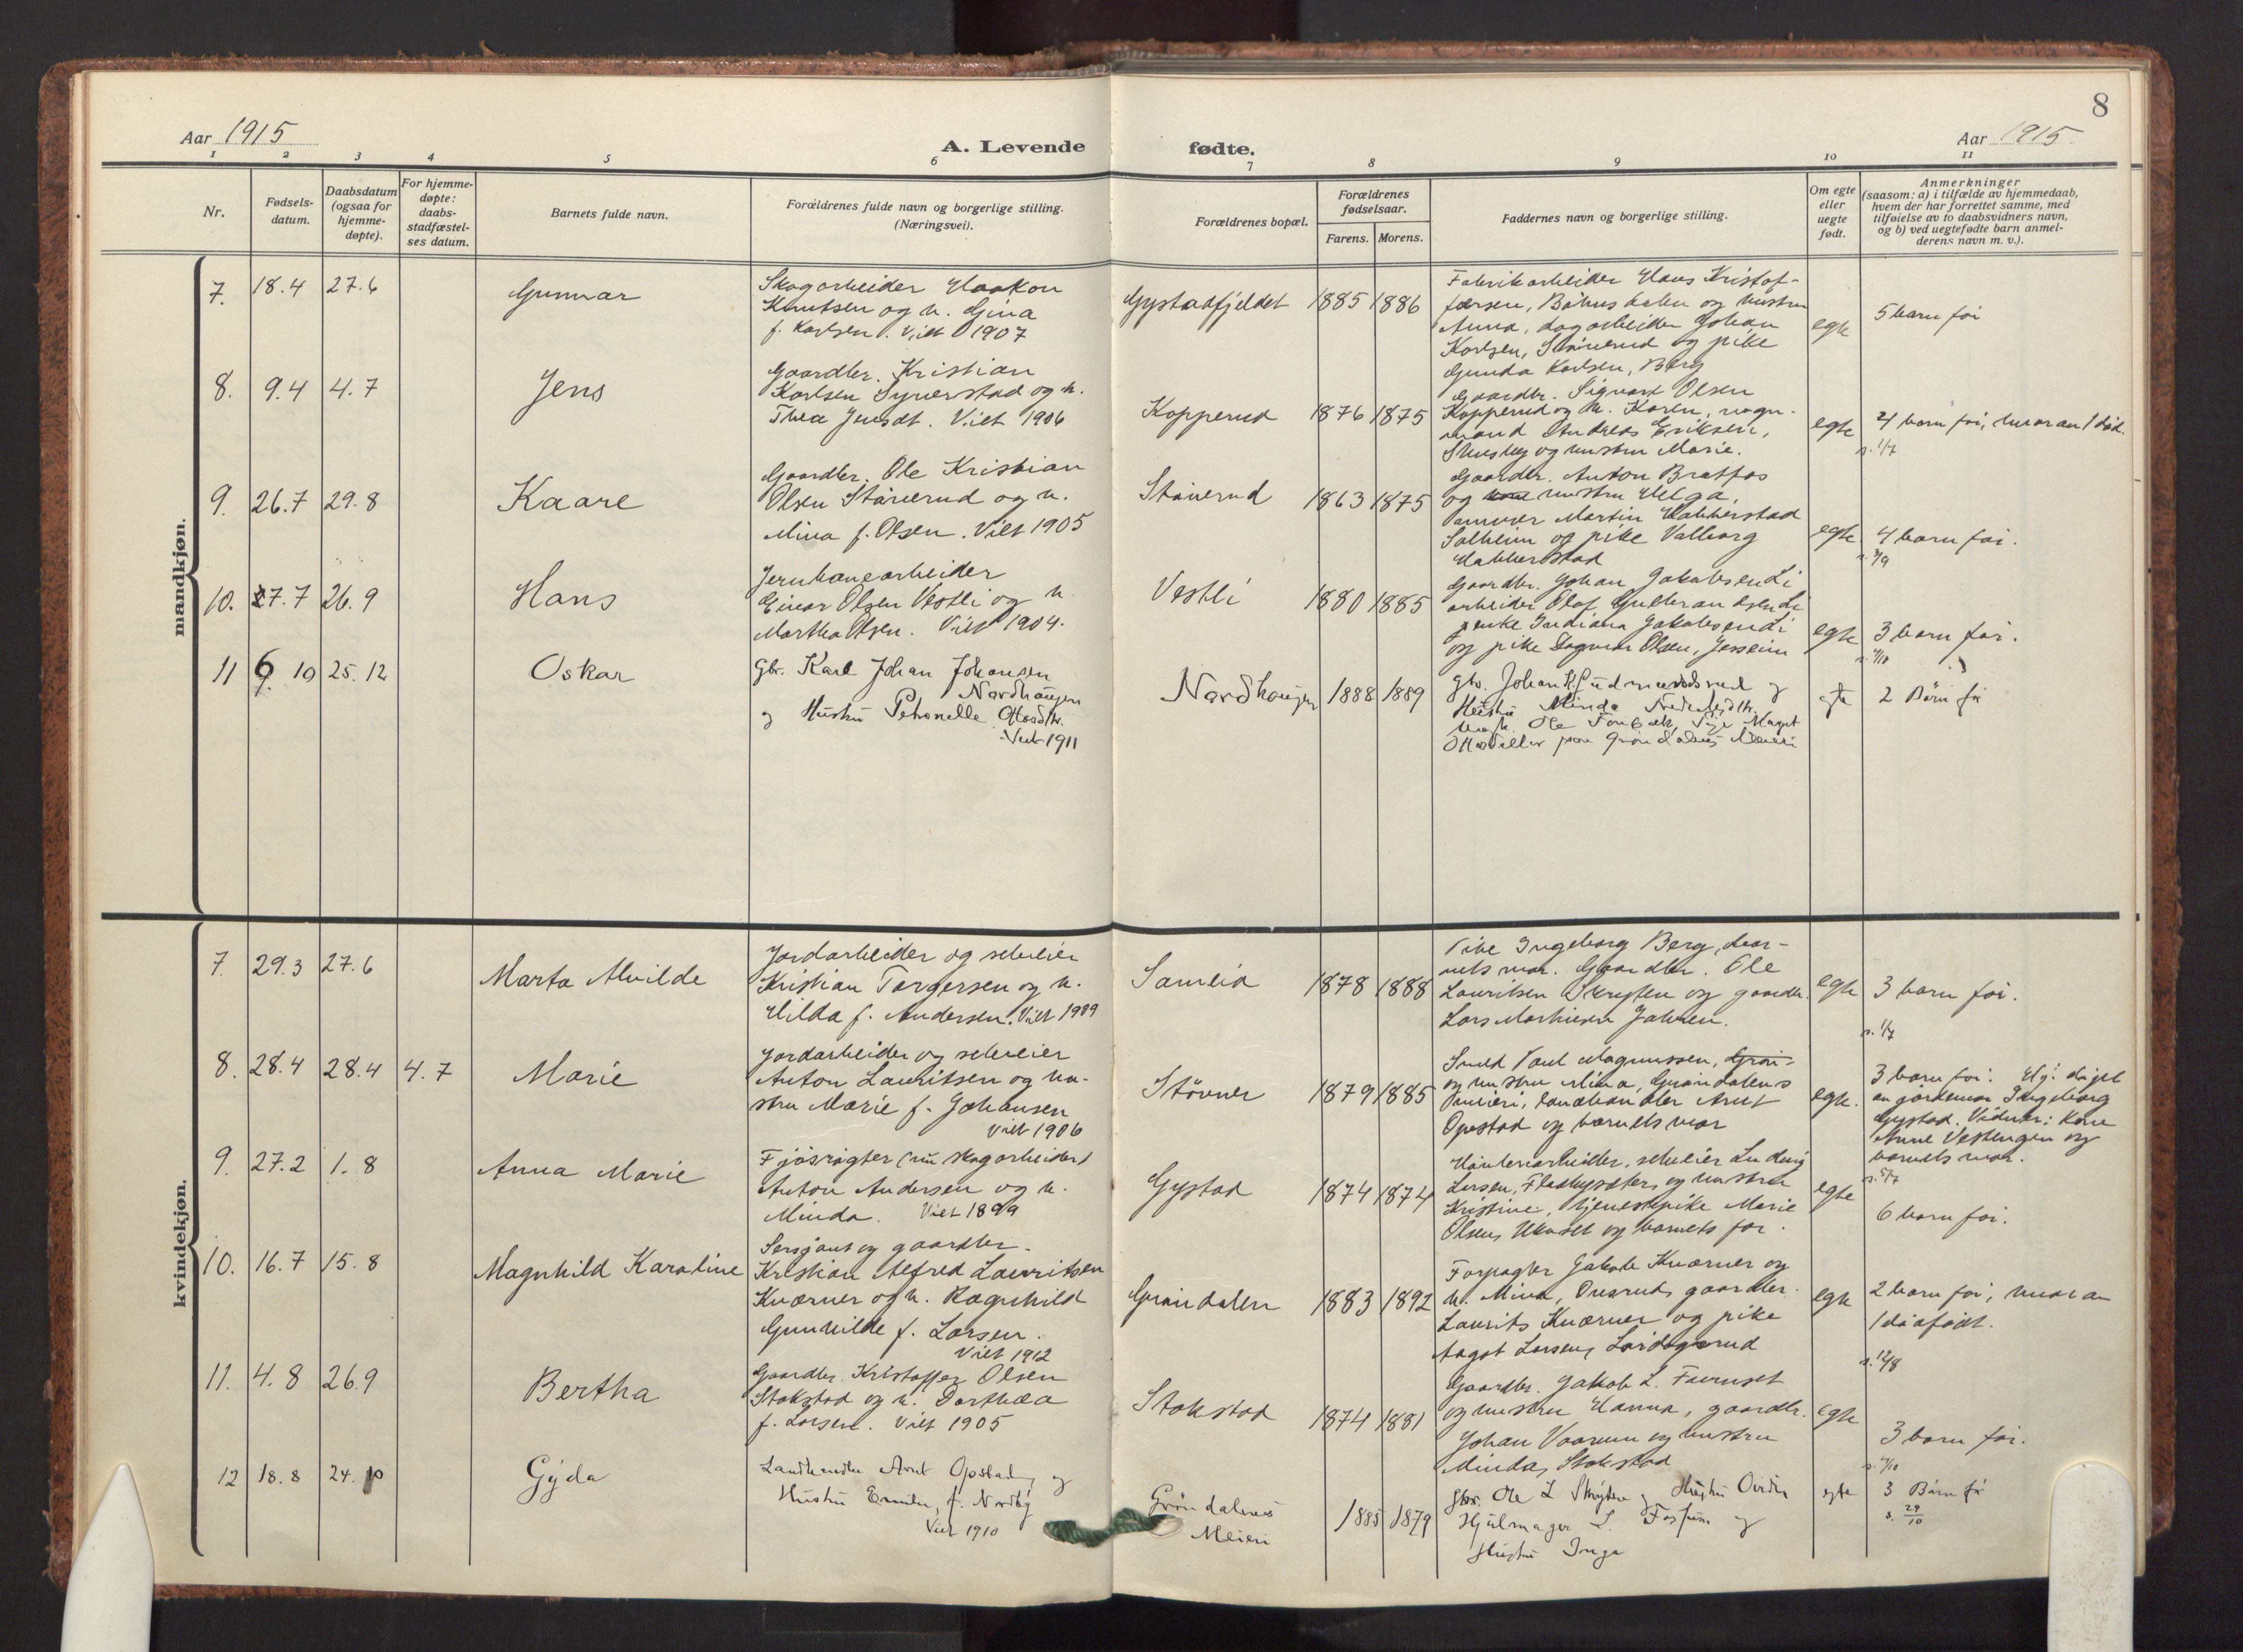 8
Aar 1915
A. Levende
fødte.
Aar 1915
1 2 3 4 5 6 7 8 9 10 11
Nr.
Fødsels-
datum.
Daabsdatum
(ogsaa for
hjemme-
døpte).
For hjemme-
døpte:
daabs-
stadfæstel-
ses datum.
Barnets fulde navn.
Forældrenes fulde navn og borgerlige stilling.
(Næringsvei).
Forældrenes bopæl.
Forældrenes
fødselsaar.
Farens. Morens.
Faddernes navn og borgerlige stilling.
Om egte
eller
uegte
født.
Anmerkninger
(saasom: a) i tilfælde av hjemmedaab,
hvem der har forrettet samme, med
tilføielse av to daabsvidners navn,
og b) ved uegtefødte barn anmel-
derens navn m. v.).
mandkjøn.
7. 18.4 27.6
Gunnar
Skogarbeider Haakon
Knutsen og h. Gina
f. Karlsen. Viet 1907
Gystadfjeldet 1885 1886
Fabrikarbeider Hans Kristof-
fersen, Bøhus og hustru
Anna, dagarbeider Johan
Karlsen, Stånerud og pike
Gunda Karlsen, Berg
egte
5 barn før
8. 9.4 4.7
Jens
Gaardbr. Kristian
Karlsen Synerstad og h.
Thea Jensdt. Viet 1906
Kopperud 1876 1875
Gaardbr. Sigvart Olsen
Kopperud og h. Karen, vogn-
mand Andreas Eriksen,
og hustru Marie.
egte
4 barn før, hvorav 1 død.
s. 1/7
9. 26.7 29.8
Kaare
Gaardbr. Ole Kristian
Olsen Stånerud og h.
Mina f. Olsen. Viet 1905
Stånerud 1863 1875
Gaardbr. Anton Bratfos
og hustru Helga,
Martin Habberstad
Solheim og pike Valborg
Habberstad
egte
4 barn før.
s. 3/9
10. 27.7 26.9
Hans
Jernbanearbeider
Einar Olsen Vestli og h.
Martha Olsen. Viet 1904.
Vestli 1880 1885
Gaardbr. Johan Jakobsen Li
arbeider Olaf Gulbrandsen Li
Indiana Jakobsen Li
og pike Dagmar Olsen, Jessheim
egte
3 barn før.
11 6. 10 25. 12
Oskar
Gbr. Karl Johan Johansen
Nordhaugen
og Hustru Petronelle Ottosdtr.
Viet 1911
Nordhaugen 1888 1889
Gbr. Johan og
Hustru Minda
Ole
Grøndalens Meieri
egte
2 Børn før
kvindekjøn.
7. 29.3 27.6
Marta Alvilde
Jordarbeider og selveier
Kristian Torgersen og h.
Hilda f. Andersen. Viet 1909
Samlia 1878 1888
Pike Ingeborg Berg, bar-
nets mor. Gaardbr. Ole
Lauritsen Skryten og gaardbr.
Lars Mathisen Jahren.
egte
3 barn før.
s. 1/7
8. 28.4 28.4 4.7
Marie
Jordarbeider og selveier
Anton Lauritsen og hu-
stru Marie f. Johansen
Viet 1906
Støvner 1879 1885
Smed Paul Magnussen,
og hustru Mina, Grøndalens
meieri, landhandler Arnt
Opstad og barnets mor
egte.
3 barn før. Hj. døpt
av jordemor Ingeborg
Gystad. Vidner: Kone
Anne Vestengen og
barnets mor.
s. 5/7
9. 27.2 1.8
Anna Marie
Fjøsrøgter (nu skogarbeider)
Anton Andersen og h.
Minda. Viet 1899
Gystad 1874 1874
selveier Ludvig
Larsen, og hustru
Kristine, tjenestepike Marie
Olsen, og barnets far.
egte
6 barn før.
10. 16.7 15.8
Magnhild Karoline
Sersjant og gaardbr.
Kristian Alfred Lauritsen
Kværner og h. Ragnhild
Gunhilde f. Larsen.
Viet 1912
Grøndalen 1883 1892
Forpagter Jakob Kværner og
h. Mina, gaardbr.
Laurits Kværner og pike
Aagot Larsen,
egte
2 barn før, hvorav
1 dødfødt.
11. 4.8 26.9
Bertha
Gaardbr. Kristoffer Olsen
Stokstad og h. Dorthea
f. Larsen. Viet 1905
Stokstad 1874 1881
Gaardbr. Jakob L. Furuset
og hustru Hanna, gaardbr.
Johan og hustru
Minda, Stokstad
egte
3 barn før.
12 18.8 24.10
Gyda
Landhandler Arnt Opstad, og
Hustru f. Nordby
Viet 1910
Grøndalens
Meieri
1885 1879
Gbr. Ole L Skryten og Hustru
Hjulmager L. Fosum og
Hustru Inga
egte
3 Børn før
s. 29/10